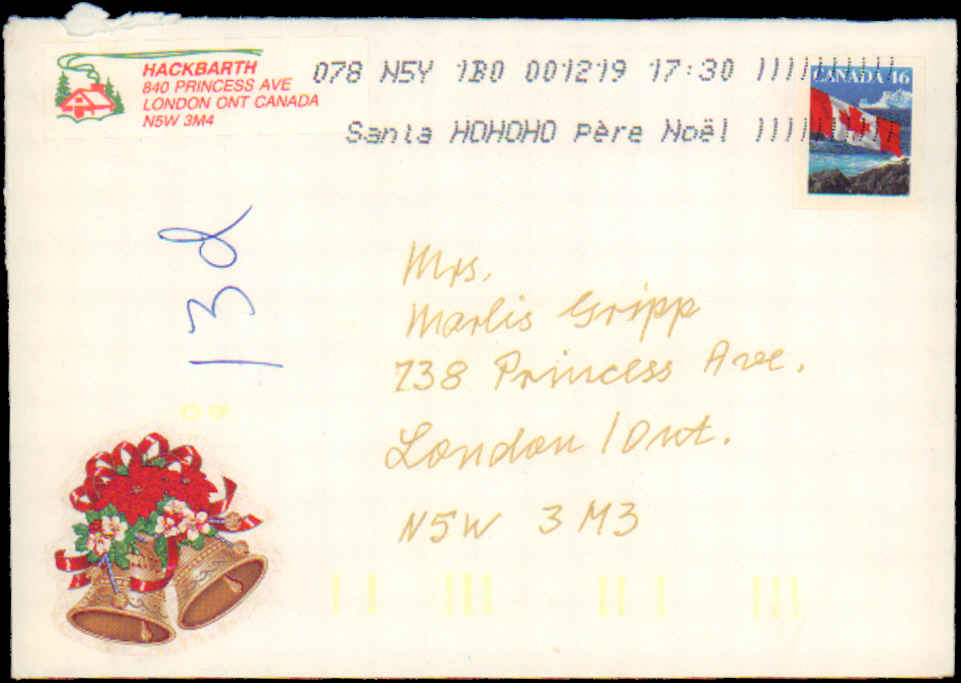 HACKBARTH
840 PRINCESS AVE
LONDON ONT CANADA
N5W 3M4
078 N5Y 1B0 001219 17:30
Santa HOHOHO Père Noël
CANADA 46
132
Mrs.
Marlis Gripp
738 Princess Ave.
London/Ont.
N5W 3M3